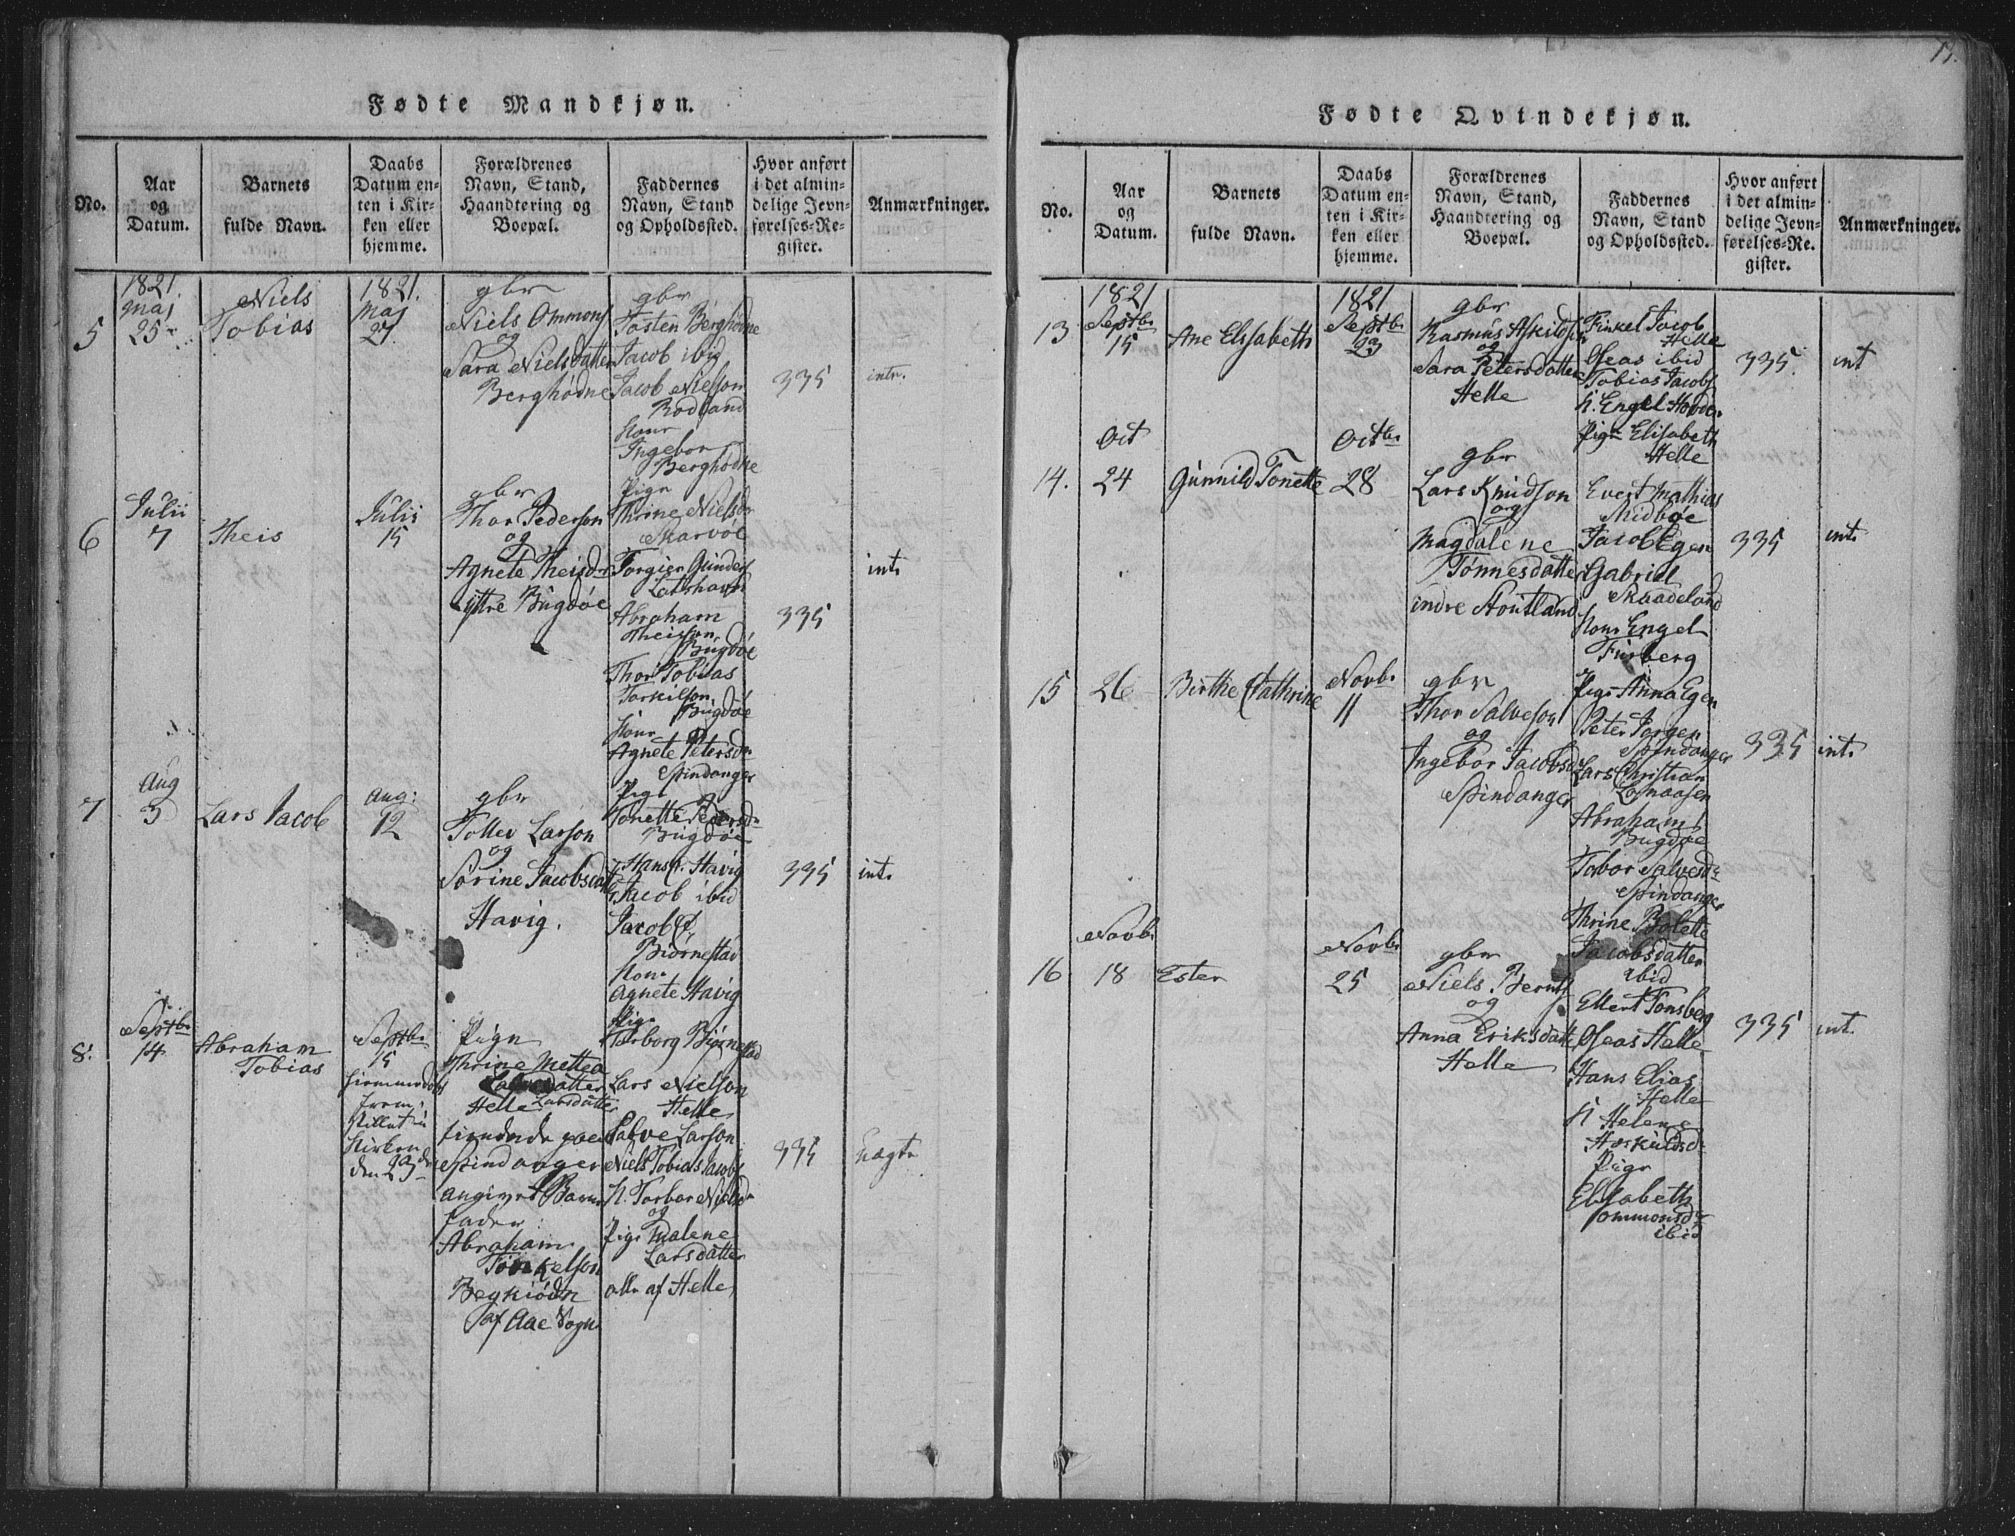 Fødte Mandkjøn.
No.
Aar
og
Datum.
Barnets
fulde Navn.
Daabs
Datum en-
ten i Kir-
ken eller
hjemme.
Forældrenes
Navn, Stand,
Haandtering og
Boepæl.
Faddernes
Navn, Stand
og Opholdssted.
Hvor anført
i det almin-
delige Jevn-
førelses-Re-
gister.
Anmærkninger.
5
1821.
Maj
25
Niels
Tobias
1821.
Maj
27
gbr
Niels Ommons
og
Sara Nielsdatter
Berghødne
gbr
Tosten Berghødne
Jacob ibid
Jacob Nielson
Rodland
Kone
Ingebor
Berghødne
Pige
Thrine Nielsdr
Skarvøe
335
int.
6
Julii
7
Theis
Julii
15
gbr
Thor Pederson
og
Agnete Theisdr
yttre Bugdøe
Torgier Gunders
Abraham
Theisson
Bugdøe
Thor Tobias
Torkilson
Bugdøe
Kone
Agnete Petersdr
Spindanger
Pige
Tonette Pedersdr
Bugdøe
335
int.
7
Aug
3
Lars Jacob
Aug:
12
gbr
Tollev Larson
og
Sørine Jacobsdatt
Havig.
Hans C. Havig
Jacob ibid
Jacob C.
Biørnestad
Kone
Agnete Havig
Pige
Torborg Biørnestad
335
int.
8.
Septbr
14
Abraham
Tobias
Septbr
15
hiemmedøbt
frem-
stillet i
Kirken
den 23de
Pigen
Thrine Mettea
Larsdatter
Helle
tienende paa
Spindanger
angivet Barne
fader:
Abraham
Torkelson
af Aae Sogn
Lars Nielson
Helle
Salve Larson
Niels Tobias Jacobs
K. Torbor Nielsdr
og
Pige Malene
Larsdatter
alle af Helle
335
Uægte
19.
Fødte Qvindekjøn.
No.
Aar
og
Datum.
Barnets
fulde Navn.
Daabs
Datum en-
ten i Kir-
ken eller
hjemme.
Forældrenes
Navn, Stand,
Haandtering og
Boepæl.
Faddernes
Navn, Stand
og Opholdssted.
Hvor anført
i det almin-
delige Jevn-
førelses-Re-
gister.
Anmærkninger.
13
1821
Septbr
15
Ane Elisabeth
1821
Septbr
23
gbr
Rasmus Askilds
og
Sara Petersdatter
Helle
Jacob
Helle
Oseas ibid
Tobias Jacobs
K. Engel Hovden
Pige Elisabeth
Helle
335.
int
14.
Oct
24
Gunnild Tonette
Octbr
28
gbr
Lars Knudson
og
Magdalene
Tønnesdatter
indre Stoutland
Evert Mathias
Midbøe
Jacob Egen
Gabriel
Skaadeland
Kone Engel
Furberg
Pige Anna Egen
335
int.
15
26
Birthe Cathrine
Novbr
11
gbr
Thor Salveson
og
Ingebor Jacobsd
Spindanger
Peter Jørgen
Spindanger
Lars Christian
Abraham
Bugdøe
Torbor Salvesdr
Spindanger
Thrine Bolette
Jacobsdatter
ibid
335
int.
16
Novbr
18
Ester
Novbr
25
gbr
Niels Bernts
og
Anna Eriksdatte
Helle
Ellert Tonsberg
Oseas Helle
Hans Elias
Helle
K Helene
Pige
Elisabeth
Ommonsdr
ibid
335
int.